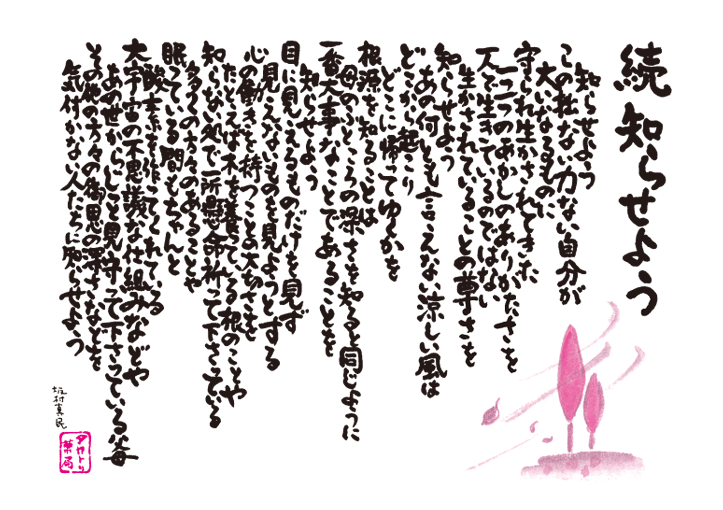 続 知らせよう
知らせよう
この拙ない力ない自分が
大いなるものに
守られ生かされてきた
一つ一つのあかしのありがたさを
人は生きているのではない
生かされていることの尊さを
知らせよう
あの何とも言えない涼しい風は
どこから起こり
どこに帰ってゆくかを
根源を知ることは
母のふところの深さを知ると同じように
一番大事なことであることを
知らせよう
目に見えるものだけを見ず
見えないものを見ようとする
心の働きを持つことの大切さを
たとえば木を養っている根のことや
知らない処で一所懸命祈って下さっている
多くの方々のあることや
眠っている間もちゃんと
酸素を作ってくれている
大宇宙の不思議な仕組みなどや
あの世からじっと見守って下さっている父母
その他の方々の御恩の深さなどを
気付かない人たちに知らせよう
坂村真民
タカトリ
薬局